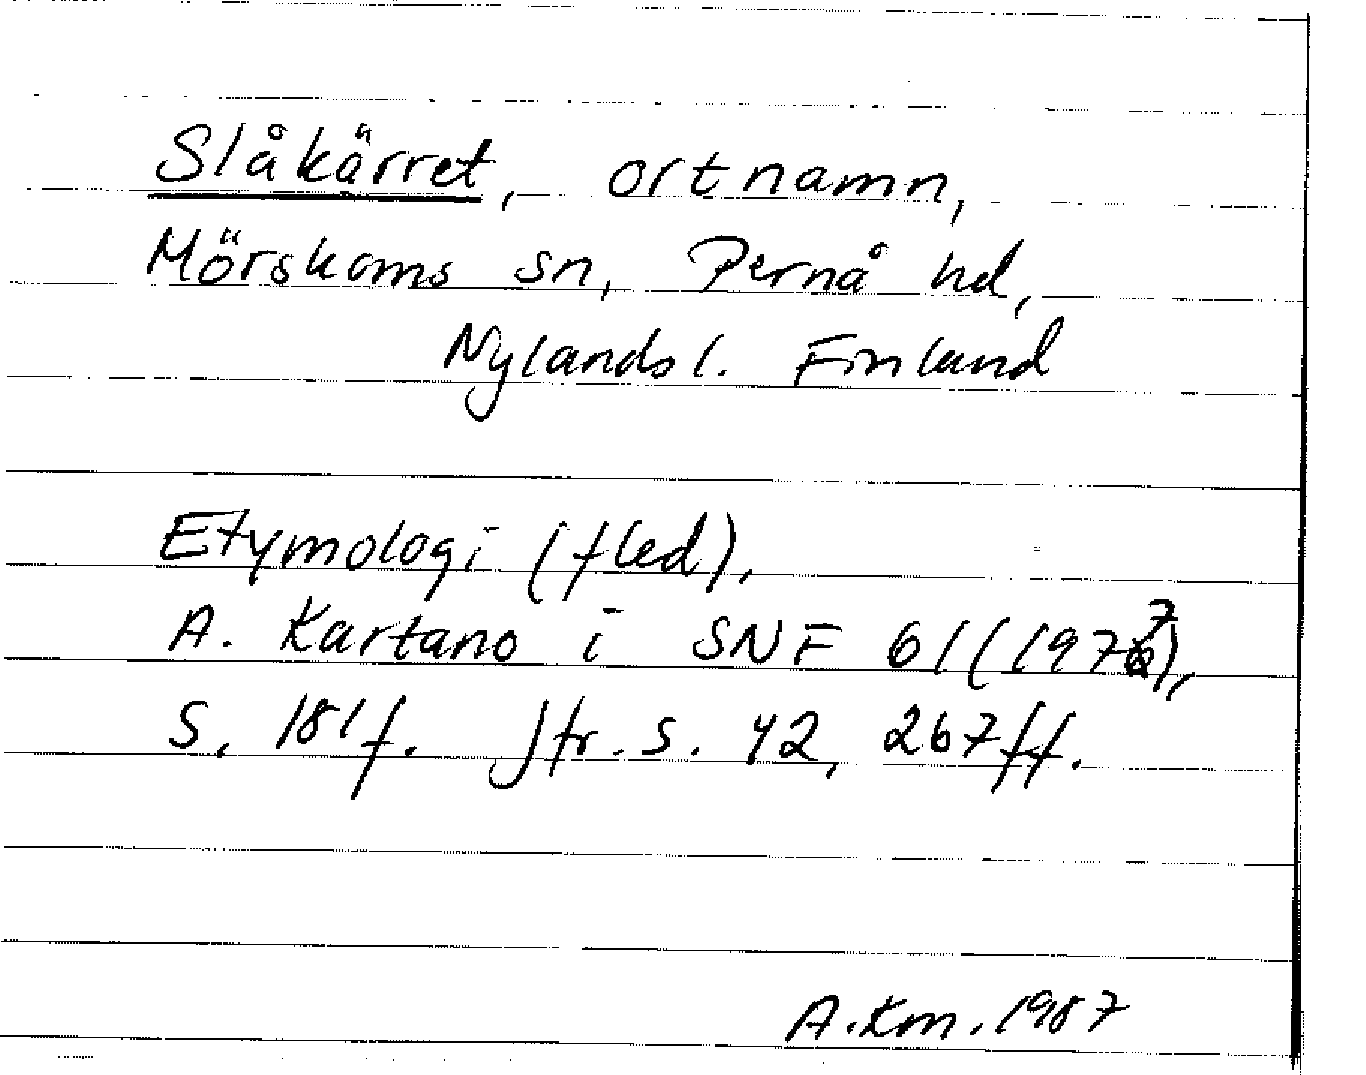 Slåkärret, ortnamn,
Mörskoms sn, Pernå hd,
Nylands l. Finland
Etymologi (fled),
A. Kartano i SNF 61 (1977),
S. 181 f. Jfr. s. 42, 267 ff.
A.Km. 1987